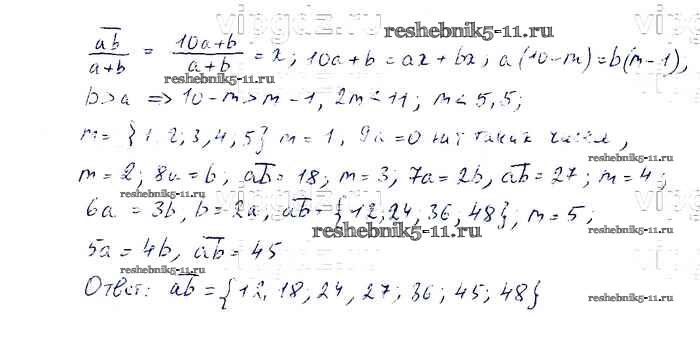 vipgdz.ru vipgdz.ru
reshebnik5-11.ru
ab/(a+b) = (10a+b)/(a+b) = x; 10a+b = ax+bx; a(10-m)=b(m-1),
b>a => 10-m>m-1, 2m<11; m<5,5;
m= {1,2;3,4,5} m=1, 9a=0 нит таких чисел,
m=2; 8a=b, ab=18; m=3; 7a=2b, ab=27; m=4;
reshebnik5-11.ru reshebnik5-11.ru
6a=3b, b=2a; ab={12,24,36,48}, m=5;
reshebnik5-11.ru
5a=4b, ab=45
reshebnik5-11.ru reshebnik5-11.ru
Ответ: ab={12,18;24,27;36;45;48}
reshebnik5-11.ru